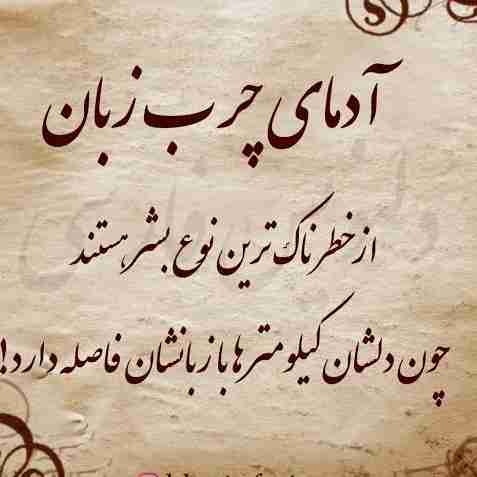 آدمای چرب زبان
از خطرناک ترین نوع بشر هستند
چون دلشان کیلومترها با زبانشان فاصله دارد!